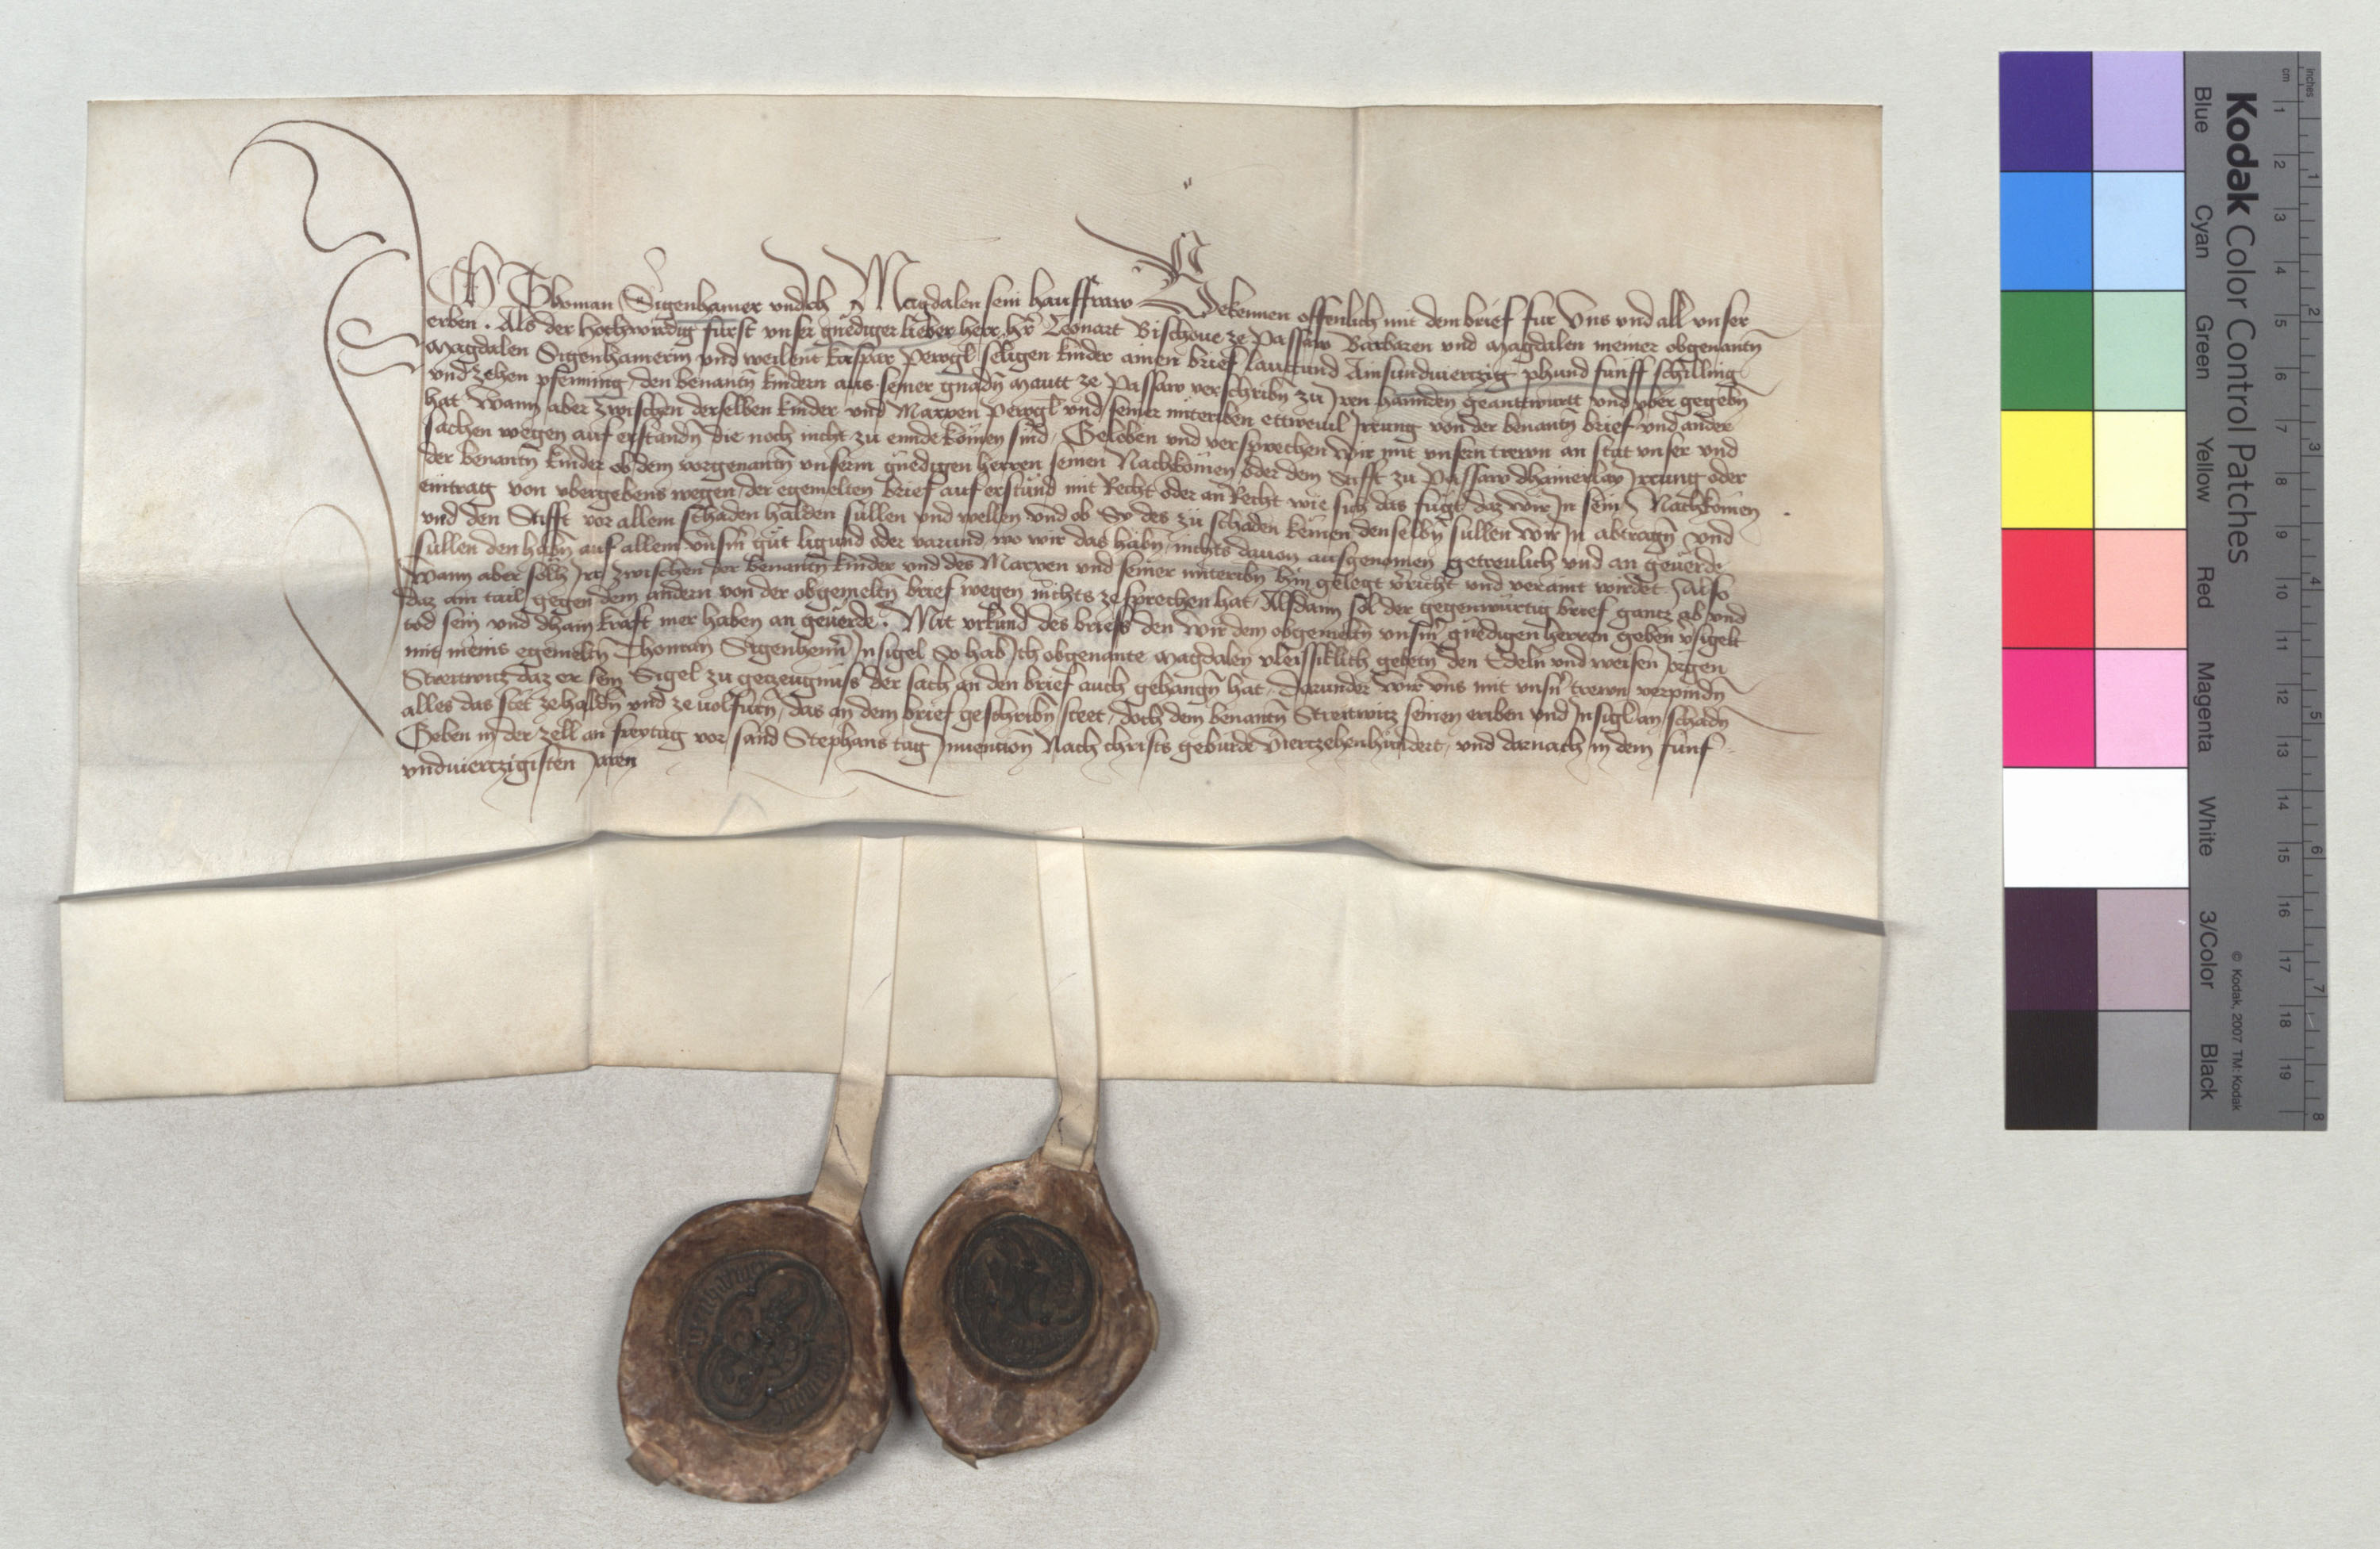 Ich Thoman Sigenhamer und ich Magdalen sein hausfraw Bekennen offenlich mit dem brief fur Uns und all unser
erben. Als der hochwirdig furst unser gnediger lieber herr h͂r Leonart Bischove ze Passaw Barbaren und Magdalen meiner obgenantn̄
Magdalen Sigenhamerin und weilent kaspar perogl seligen kinder ainen brief lauttund Ainsundviertzig phund funff schilling
und zehen pfenning, den benantn̄ kindern aus seiner gnadn̄ mautt ze Passaw verschribn̄ zu Iren hannden geantwurtt und uber gegebn̄
hat Wann aber zwischen derselben kinder und Marxen perogl und seiner miterben ettwevil Irrung von der benantn̄ brief und ander
sachen wegen auf erstandn̄ die noch nicht zu ennde komen sind, Geloben und versprechen Wir mit unsern trewn an stat unser und
der benantn̄ kinder ob dem vorgenantn̄ unserm gnedigen herren seinen Nachkomen oder dem Stifft zu Passaw dhainerlay Irrung oder
eintrag von ubergebens wegen, der egemelten brief auf erstund mit Recht oder an Recht wie sich das fugt, daz wir In sein Nachkomen
und den Stifft vor allem schaden halden sullen und wellen und ob Sy des zu schaden kemen denselbn̄ sullen wir In abtragn̄ und
sullen den habn̄ auf allem unsm̄ gut ligund oder varund, wo wir das habn̄, nichts davon ausgenomen getreulich und an geuerde
Wann aber solh Irr zwischen der benantn̄ kinder und des Marxen und seiner miteribn̄ hin gelegt v͂richt und veraint wirdet. Also
daz ain tail gegen dem andern von der obgemeltn̄ brief wegen nichts ze sprechen hat, Alsdann sol der gegenwurtig brief gantz ab und
tod sein und dhain kraft mer haben an geuerde. Mit urkund des briefs den wir dem obgemeltn̄ unsm̄ gnedigen herren geben v͂sigelt
mit meins egemeltn̄ Thoman Sigenhem͂ Insigel So hab Ich obgenante Magdalen vleissiklich gebetn̄ den Edeln und weisen Jorgen
Streitwitz daz er sein Sigel zu getzeugnuss der sach an den brief auch gehangn̄ hat, darunder Wir uns mit unsn͂ trewn verpindn̄
alles das stet ze haldn̄ und ze volfurn̄, das an dem brief geschribn̄ steet, doch dem benantn̄ Streitwitz seinen eriben und Insigl an schadn̄
Geben in der zell an freytag vor sand Stephans tag Invention Nach christs geburde Viertzehenhundert, und darnach in dem funf
undviertzigisten Jaren
Kodak Color Control Patches
Blue Cyan Green Yellow Red Magenta White 3/Color Black
© Kodak, 2007 TM: Kodak
inches 1 2 3 4 5 6 7 8
cm 1 2 3 4 5 6 7 8 9 10 11 12 13 14 15 16 17 18 19